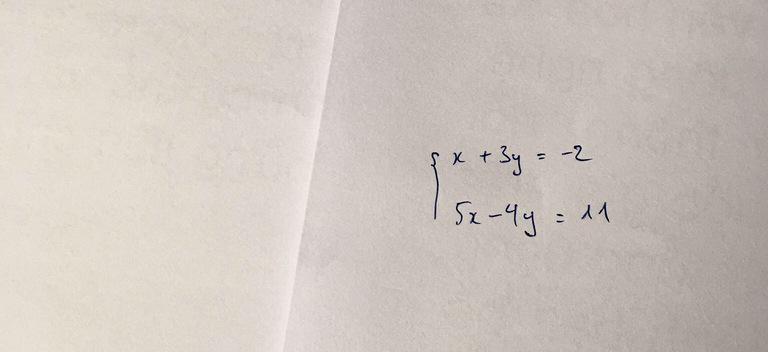 x + 3y = -2
5x - 4y = 11